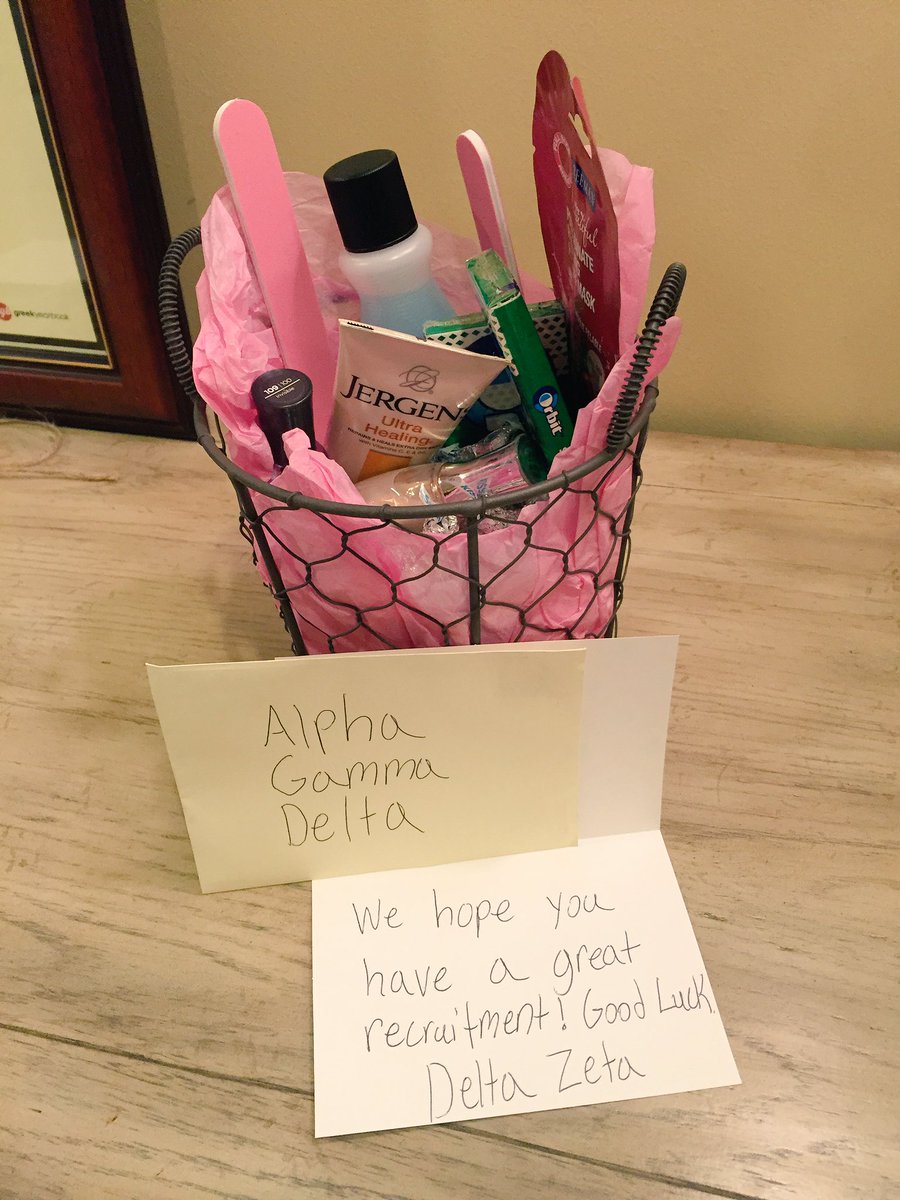 greekyearbook
109 / 100
Invisible
JERGENS
Ultra
Healing
Orbit
MASK
Alpha
Gamma
Delta
We hope you
have a great
recruitment! Good Luck.
Delta Zeta